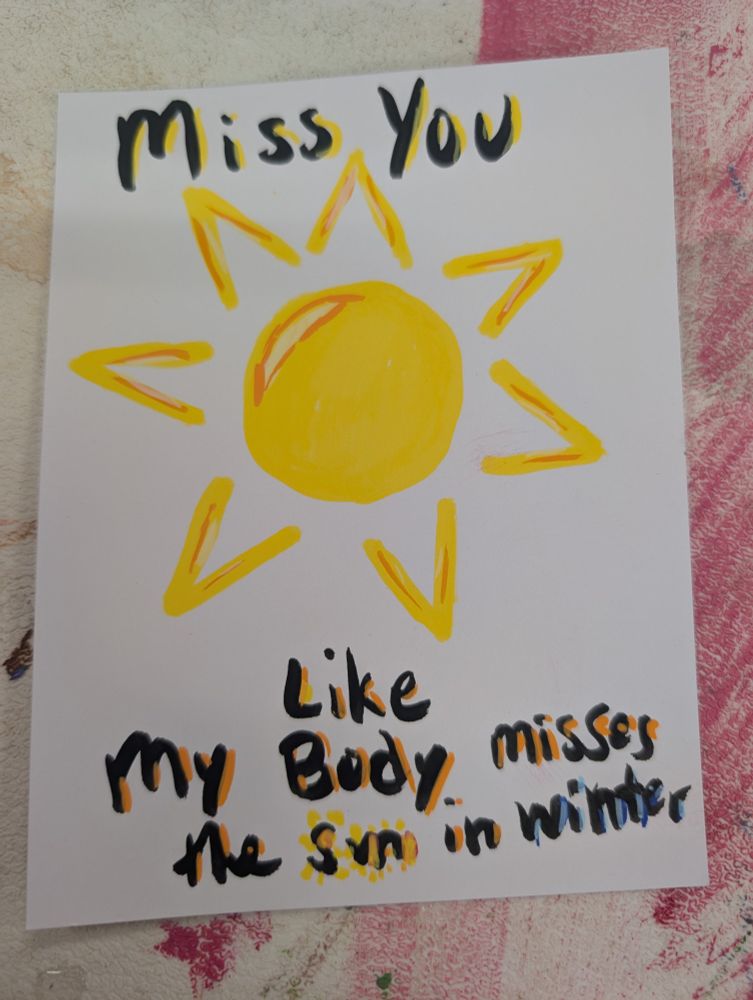 Miss You
Like
My Body misses
the sun in winter